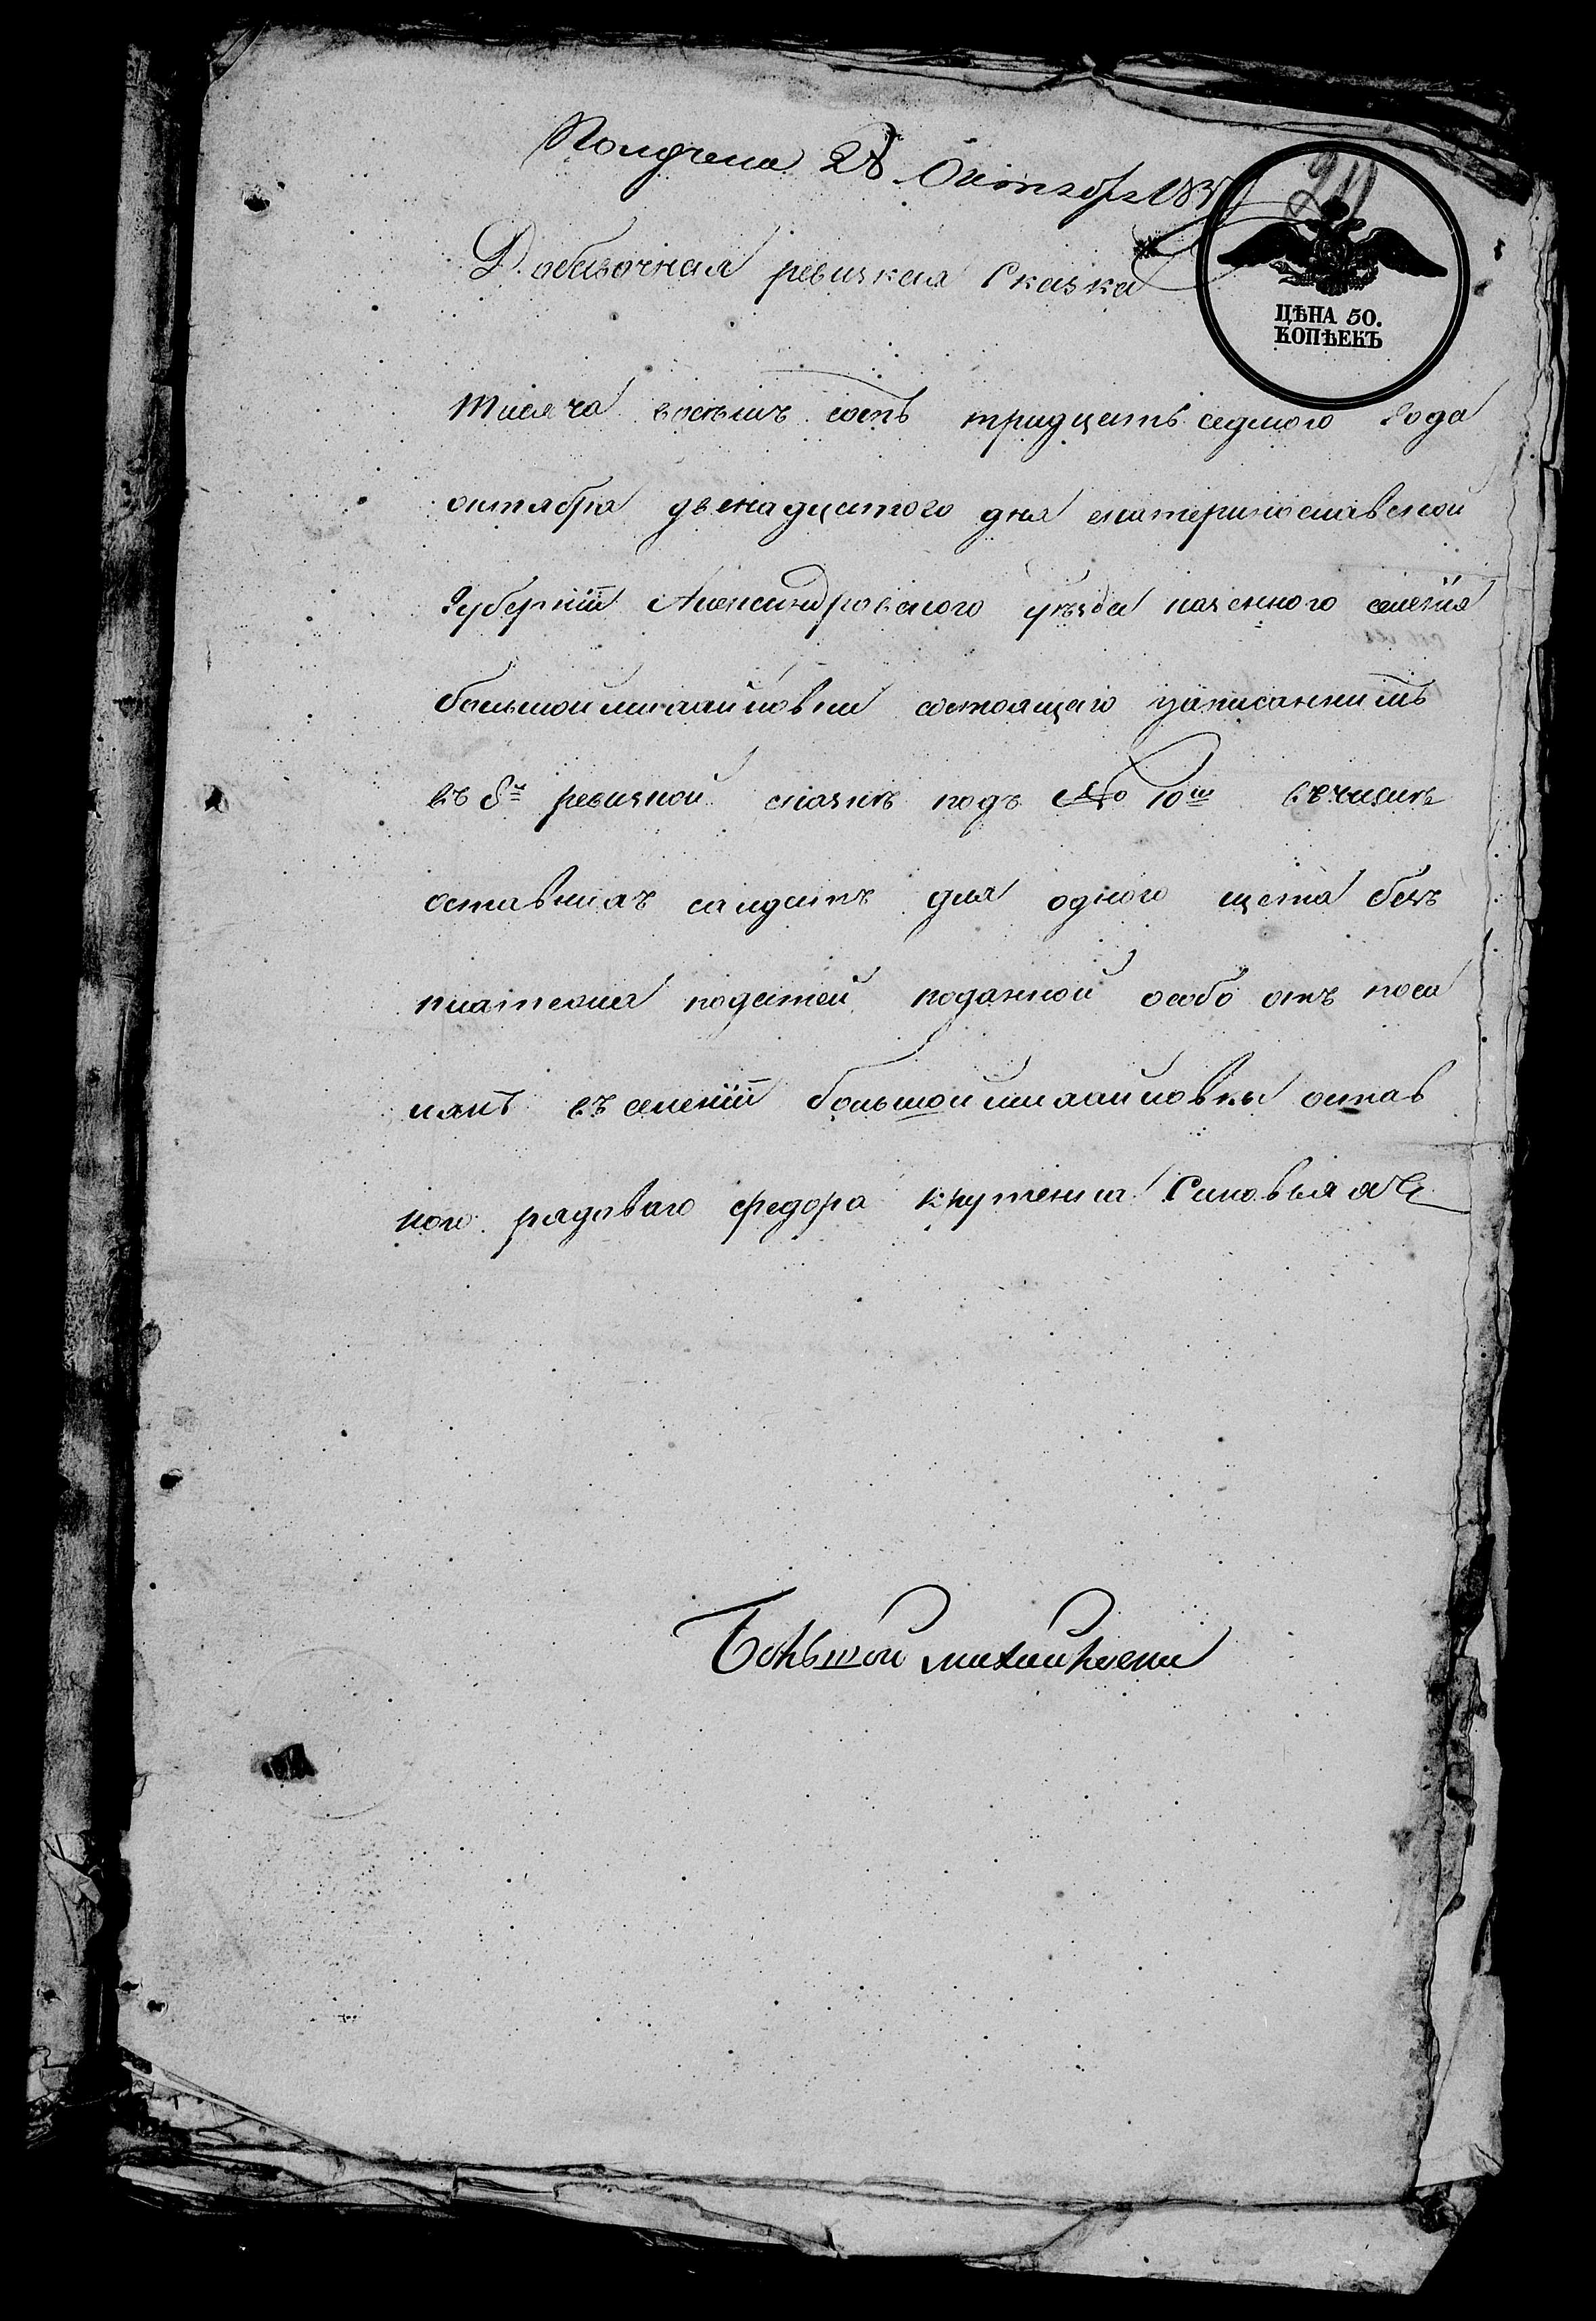 Получена 28 Октября 1837
Добавочная ревизкая Сказка
ЦѢНА 50.
КОПѢЕКЪ
тисяча восемъ сотъ тридцать седмого года
октября двенадцатого дня екатеринославской
Губерніи Александровского уѣзда казенного селенія
большоймихайловки состоящаго
въ 8й ревизкой сказкѣ подъ № 10м въ числѣ
оставнихъ салдатъ для одного щета безъ
платежа податей поданной особо отъ посе
лянъ въ селеніи большоймихайловки остав
ного рядоваго федора Синовьяхъ
Большой михайловки